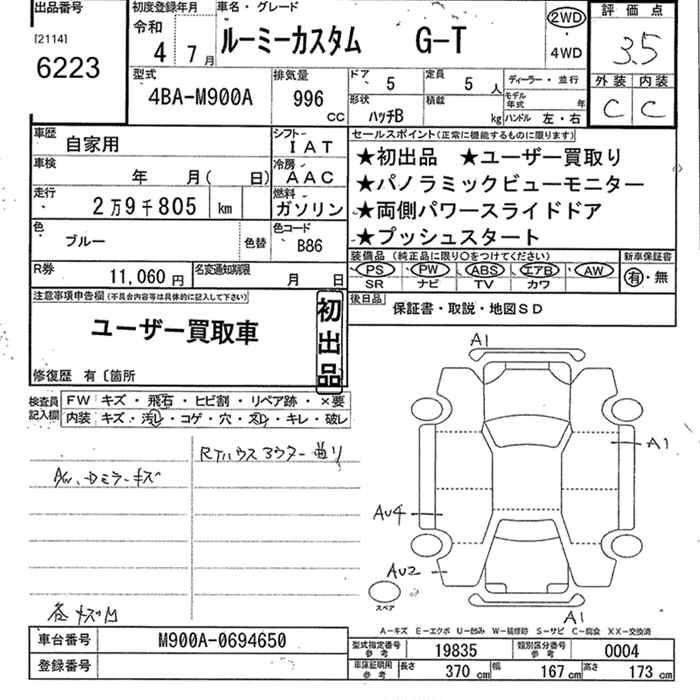 出品番号
[2114]
6223
初度登録年月
令和
4 7月
車名・グレード
ルーミーカスタム G-T
2WD
・
4WD
評価点
3.5
外装 内装
C C
型式
4BA-M900A
排気量
996
CC
ドア 5
定員 5人
形状 ハッチB
積載 kg
ディーラー・並行
モデル年式 年
ハンドル 左・右
車歴 自家用
シフト IAT
車検 年 月( 日)
冷房 AAC
走行 2万9千805 km
燃料 ガソリン
色 ブルー 色替
色コード B86
R券 11,060円
名変通知期限 月 日
セールスポイント(正常に機能するものに限ります)
★初出品 ★ユーザー買取り
★パノラミックビューモニター
★両側パワースライドドア
★プッシュスタート
装備品 (純正品に限り〇をつけてください)
PS PW ABS エアB AW
SR ナビ TV カワ
新車保証書
有・無
後日品
保証書・取説・地図SD
注意事項申告欄(不具合内容等は具体的に記入して下さい)
ユーザー買取車
初出品
修復歴 有〔箇所
検査員記入欄
FW キズ・飛石・ヒビ割・リペア跡・×要
内装 キズ・汚レ・コゲ・穴・スレ・キレ・破レ
RTハウスアウター曲り
AW、Dミラーキズ
A1
A1
AU4
AU2
A1
スペア
A-キズ E-エクボ U-凹み W-補修跡 S-サビ C-腐食 XX-交換済
車台番号 M900A-0694650
登録番号
型式指定番号 参考 19835
類別区分番号 参考 0004
車庫証明用 参考 長さ 370cm 幅 167cm 高さ 173cm